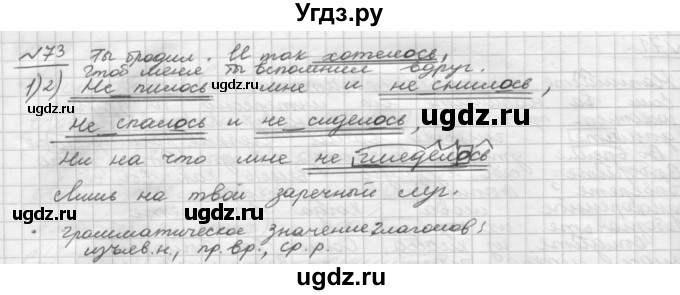 Угдз.ру
№73 Ты бродил. И так хотелось,
Чтоб меня ты вспомнил вдруг.
1)2) Не пилось мне и не снилось,
Не спалось и не сиделось,
Ни на что мне не гляделось
Лишь на твой заречный луг.
• Грамматическое значение глаголов:
изъяв.н., пр.вр., ср.р.
ugdz.ru
ugdz.ru
ugdz.ru
ugdz.ru
ugdz.ru
ugdz.ru
ugdz.ru
ugdz.ru